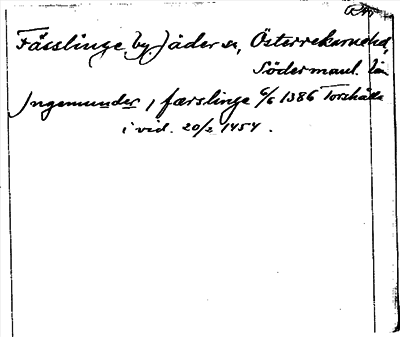 Fässlinge, by, Jäder sn, Österrekarne hd,
Södermanl. län
Ingemunder j færslinge 6/6 1386 Torshälla
i vid. 20/2 1454.